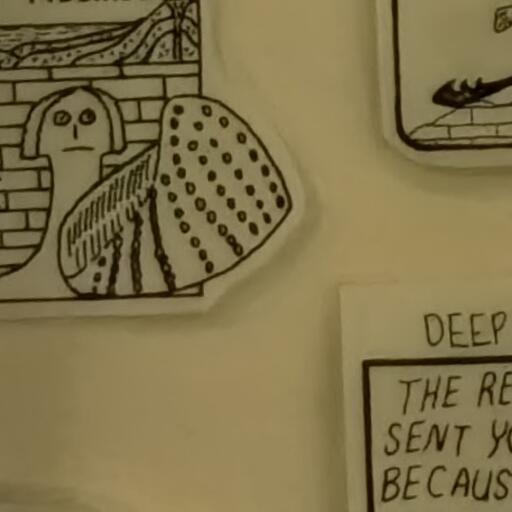 DEEP
THE RE
SENT YO
BECAUS